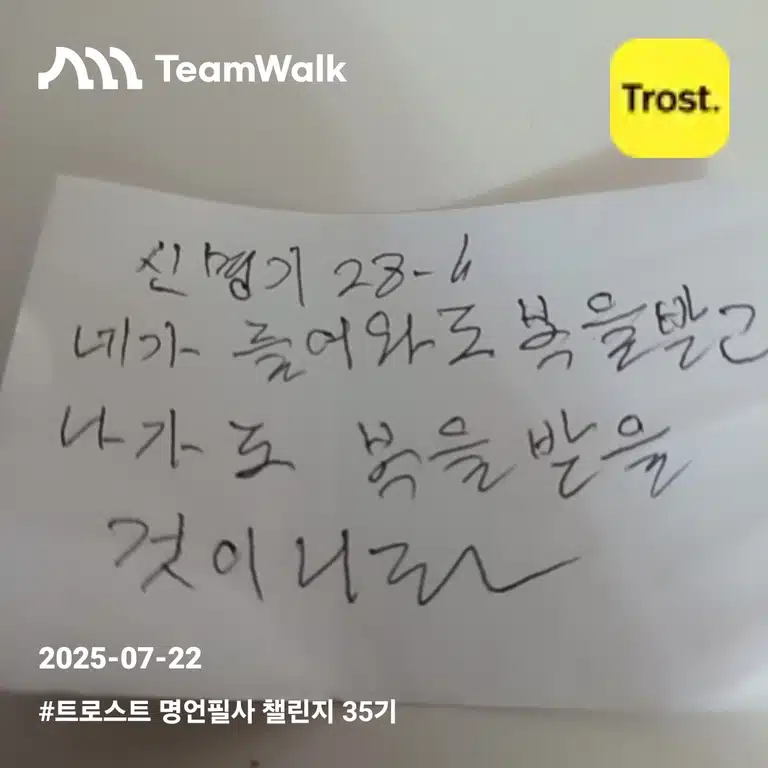 TeamWalk
Trost.
신명기 28-6
네가 들어와도 복을받고
나가도 복을 받을
것이니라
2025-07-22
#트로스트 명언필사 챌린지 35기